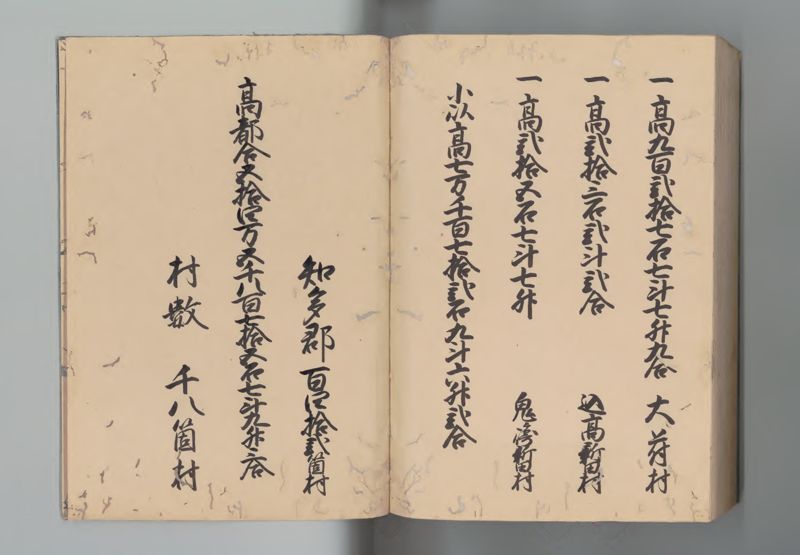 一高九百弐拾七石七斗七升九合 大苻村
一高弐拾三石弐斗弐合 込高新田村
一高弐拾五石七斗七升 鬼新田村
小以高七万千百七拾弐石九斗六升弐合
知多郡 百四拾弐箇村
高都合五拾四万五千八百七拾五石七斗九升六合
村数 千八箇村